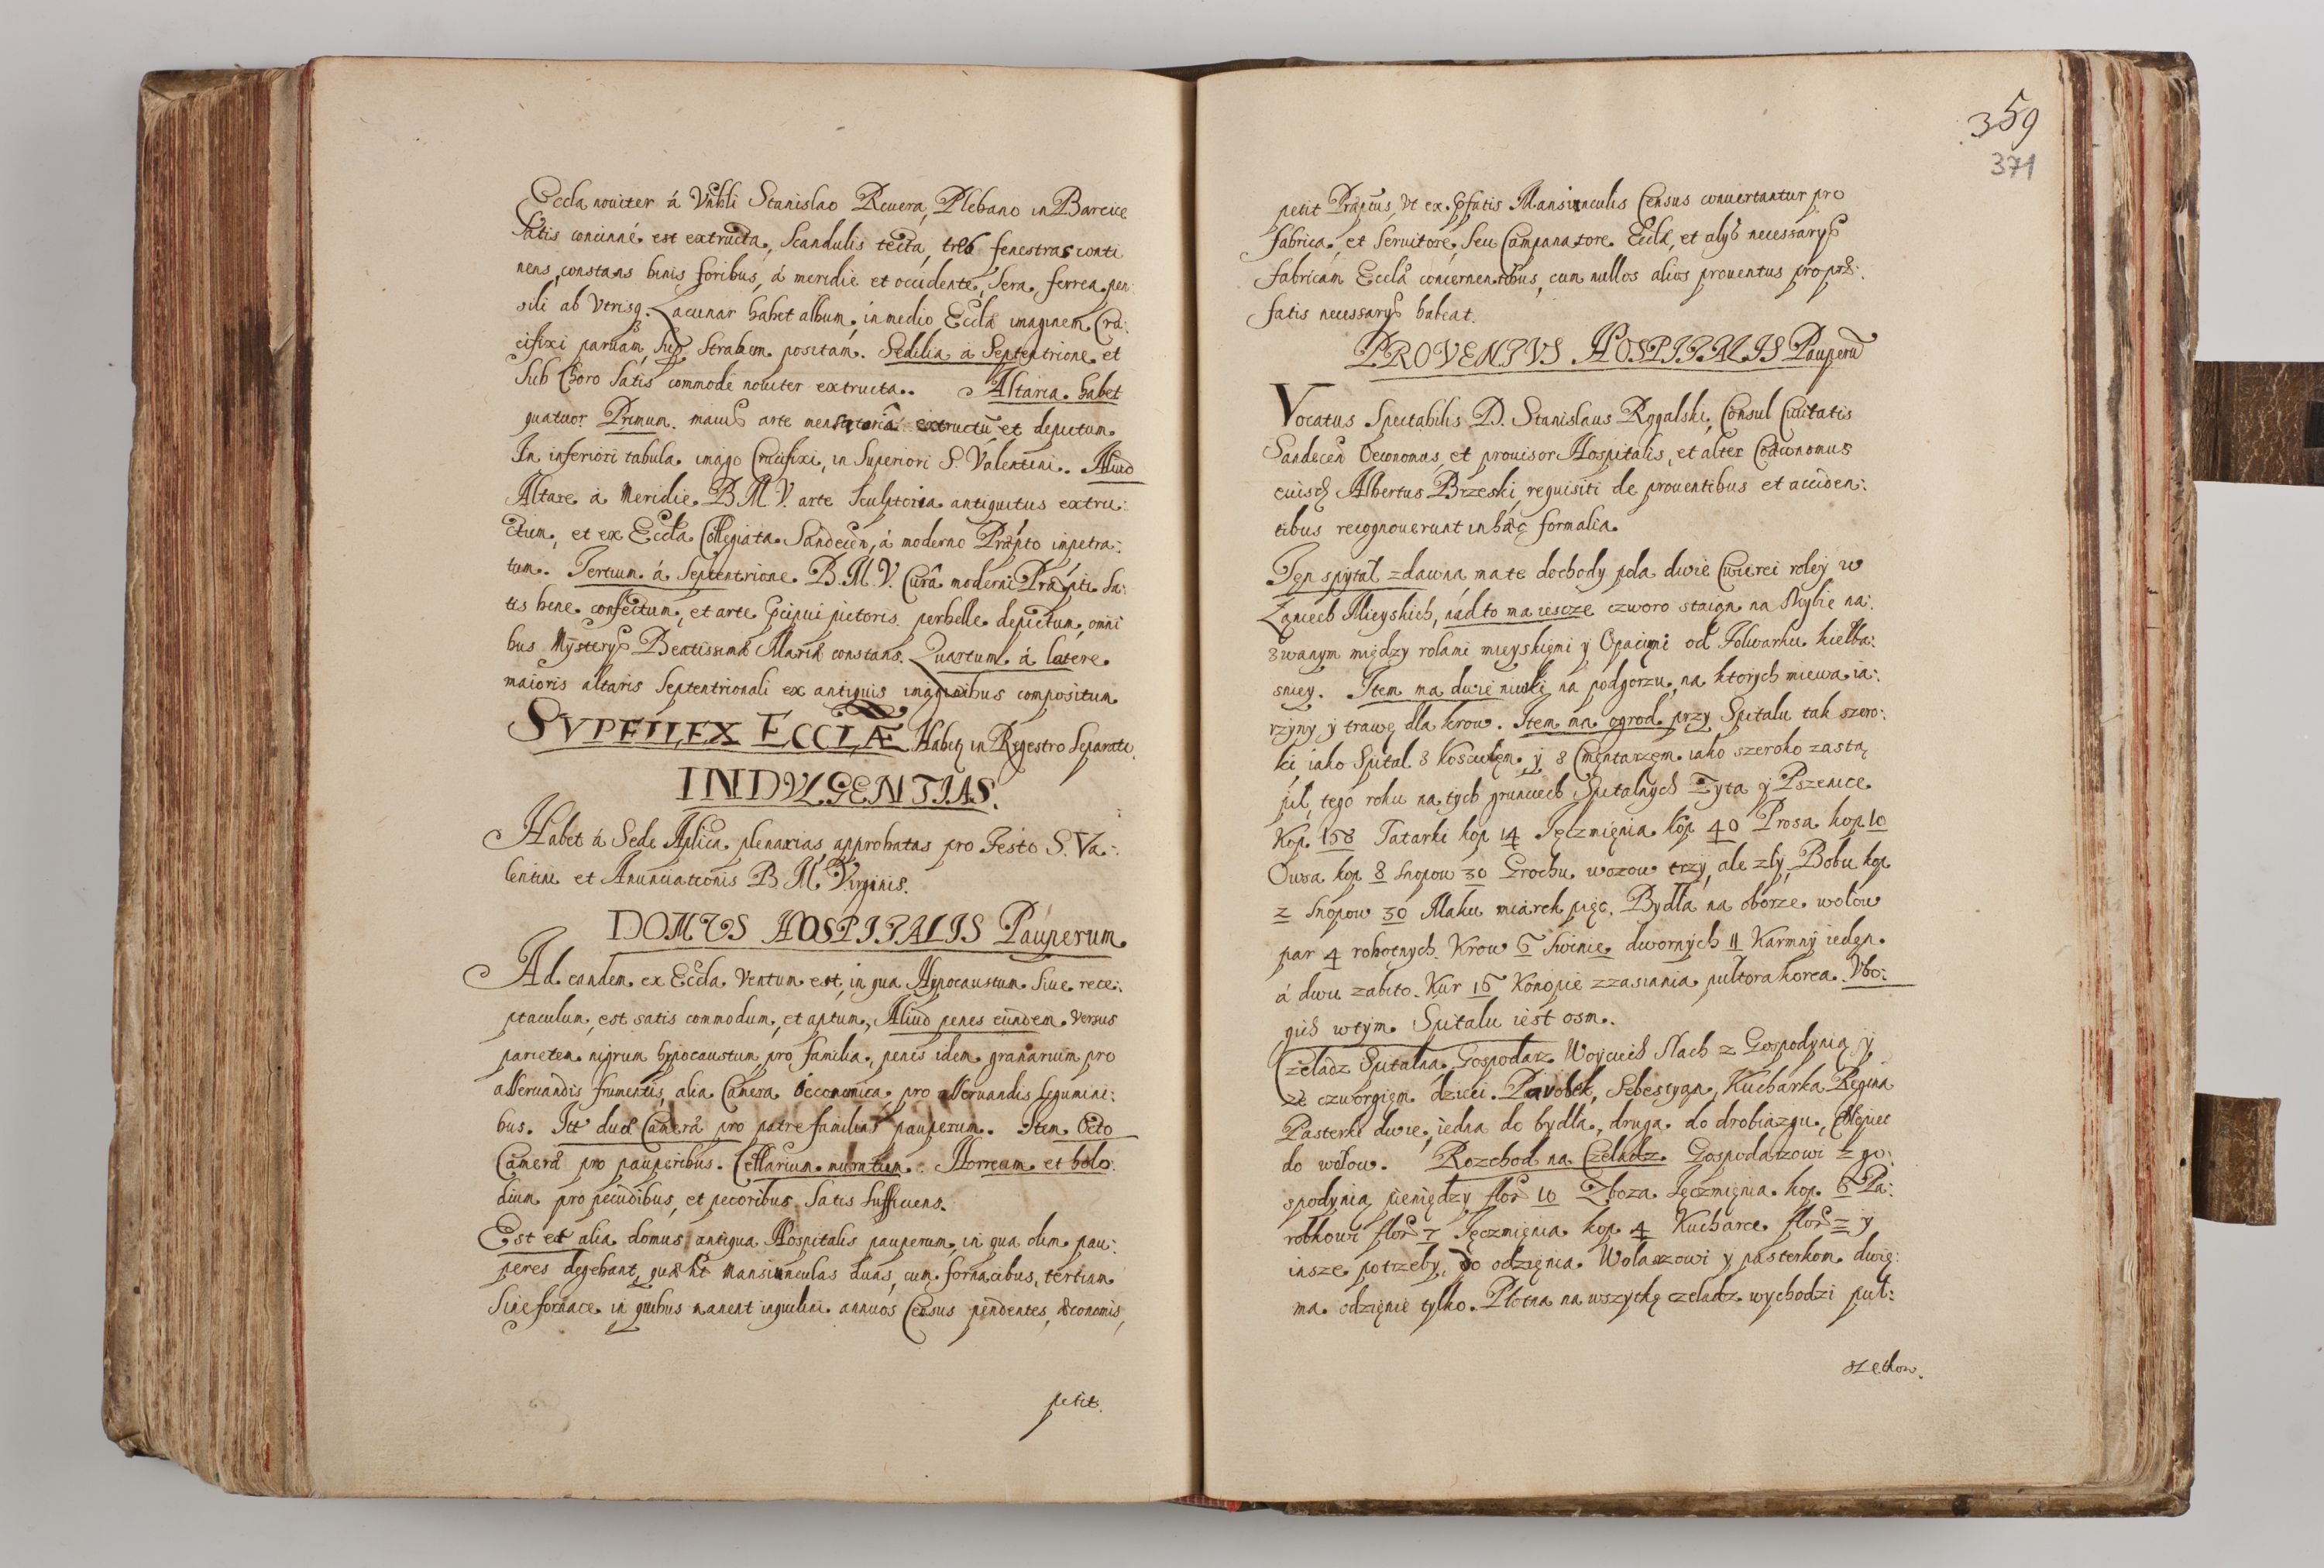 Eccla noviter á Vnbli Stanislao Revera, Plebano in Barcice
Satis concinné est extructa, Scandulis tecta, tres fenestras conti
nens, constans binis foribus, á meridie et occidente, Sera, ferrea pen
sili ab Vtrisq. Lacunar habet album, in medio Ecclæ imaginem Cru:
cifixi parvam, Sup strabem positam. Sedilia á Septentrione et
Sub Choro Satis commodé noviter extructa. Altaria habet
quatuor Primum maius arte extructũ et depictum
In inferiori tabula imago Crucifixi, in Superiori S. Valentini. Aliud
Altare á Meridie B. M. V. arte Sculptoria antiquitus extru:
ctum, et ex Eccla Collegiata Sandecen, á moderno Præpto impetra:
tum. Tertium á Septentrione B. M. V. Curâ moderni Præpti Sa:
tis bene confectum, et arte pcipui pictoris perbelle depictum, omni
bus Mysterys Beatissimæ Mariæ constans. Quartum á latere
maioris altaris Septentrionali ex antiquis imaginibus compositum
SVPELLEX ECCLÆ Habet in Regestro Separato.
INDVLGENTIAS.
Habet á Sede Aplica plenarias approbatas pro Festo S. Va:
lentini et Anunciationis B. M. Virginis.
DOMVS HOSPITALIS Pauperum
Ad eandem ex Eccla Ventum est, in qua Hypocaustum Sive rece:
ptaculum, est satis commodum, et aptum, Aliud penes eundem versus
parietem nigrum hypocaustum pro familia, penes idem granarium pro
asservandis frumentis, alia Camera Oeconomica pro asservandis legumini:
bus. Itt duæ Cameræ pro patre familias pauperum. Item Octo
Cameræ pro pauperibus. Cellarium muratum. Horreum et bolo:
dium pro pecudibus, et pecoribus Satis Sufficiens.
Est et alia domus antiqua Hospitalis pauperum, in qua olim pau:
peres degebant, quæ ht Mansiunculas duas, cum fornacibus, tertiam
Sine fornace in quibus manent inquilini annuos Census pendentes, œconomis,
petit.
359
371
petit Præptus, Vt ex pfatis Mansiunculis Census convertantur pro
fabrica, et Servitore, Seu Campanatore Ecclæ, et alys necessarys
fabricam Ecclæ concernentibus, cum nullos alios proventus pro præ:
fatis necessarys habeat.
PROVENTVS HOSPITALIS Pauperũ
Vocatus Spectabilis D. Stanislaus Rogalski, Consul Civitatis
Sandecen Oeconomus, et provisor Hospitalis, et alter Coœconomus
euisd Albertus Brzeski, requisiti de proventibus et acciden:
tibus recognoverunt in hæc formalia.
Ten spytal zdawna ma te dochody pola dwie Cwierci roley w
Łąniech Mieyskich, nád to ma iescze czworo staign na Skybie na:
zwanym między rolami mieyskięmi y Opaciemi od Folwarku kiełba:
sniey. Item ma dwie niwki na podgorzu, na ktorych miewa ia:
rzyny y trawę dla krow. Item ma ogrod przy Spitalu tak szero:
ki iako Spital z Kosciołęm, y z Cmentarzęm iako szeroko zastą
pił, tego roku na tych gruncech Spitalnych Zyta y Pszenice
Kop. 158 Tatarki kop 14 Ięczmięnia kop 40 Prosa kop 10
Owsa kop 8 Snopow 30 Grochu wozow trzy, ale zły, Bobu kop
2 Snopow 30 Maku miarek pięc. Bydła na oborze wołow
par 4 robotnych. Krow 6 Swinie dwornych 11 Karmny iedęn
á dwu zabito. Kur 16 Konopie zzasiania pułtora korca. Vbo:
gich wtym Spitalu iest osm.
Czeladz Spitalna Gospodarz Woyciech Slach z Gospodynią y
ze czworgięm dzieci. Parobek, Sebestyan, Kucharka Regina
Pasterki dwie, iedna do bydła, druga do drobiazgu, Chłopiec
do wołow. Rozchod na Czeladz. Gospodarzowi z go:
spodynią pieniędzy flor 10 Zboza Ięczmięnia kop. 6 Pa:
robkowi flor 7 Ięczmięnia kop 4 Kucharce flor 2 y
insze potrzeby, do odzięnia. Wolarzowi y pasterkom dwię:
ma odzięnie tylko. Płotna na wszytkę czeladz wychodzi puł:
szetkow.